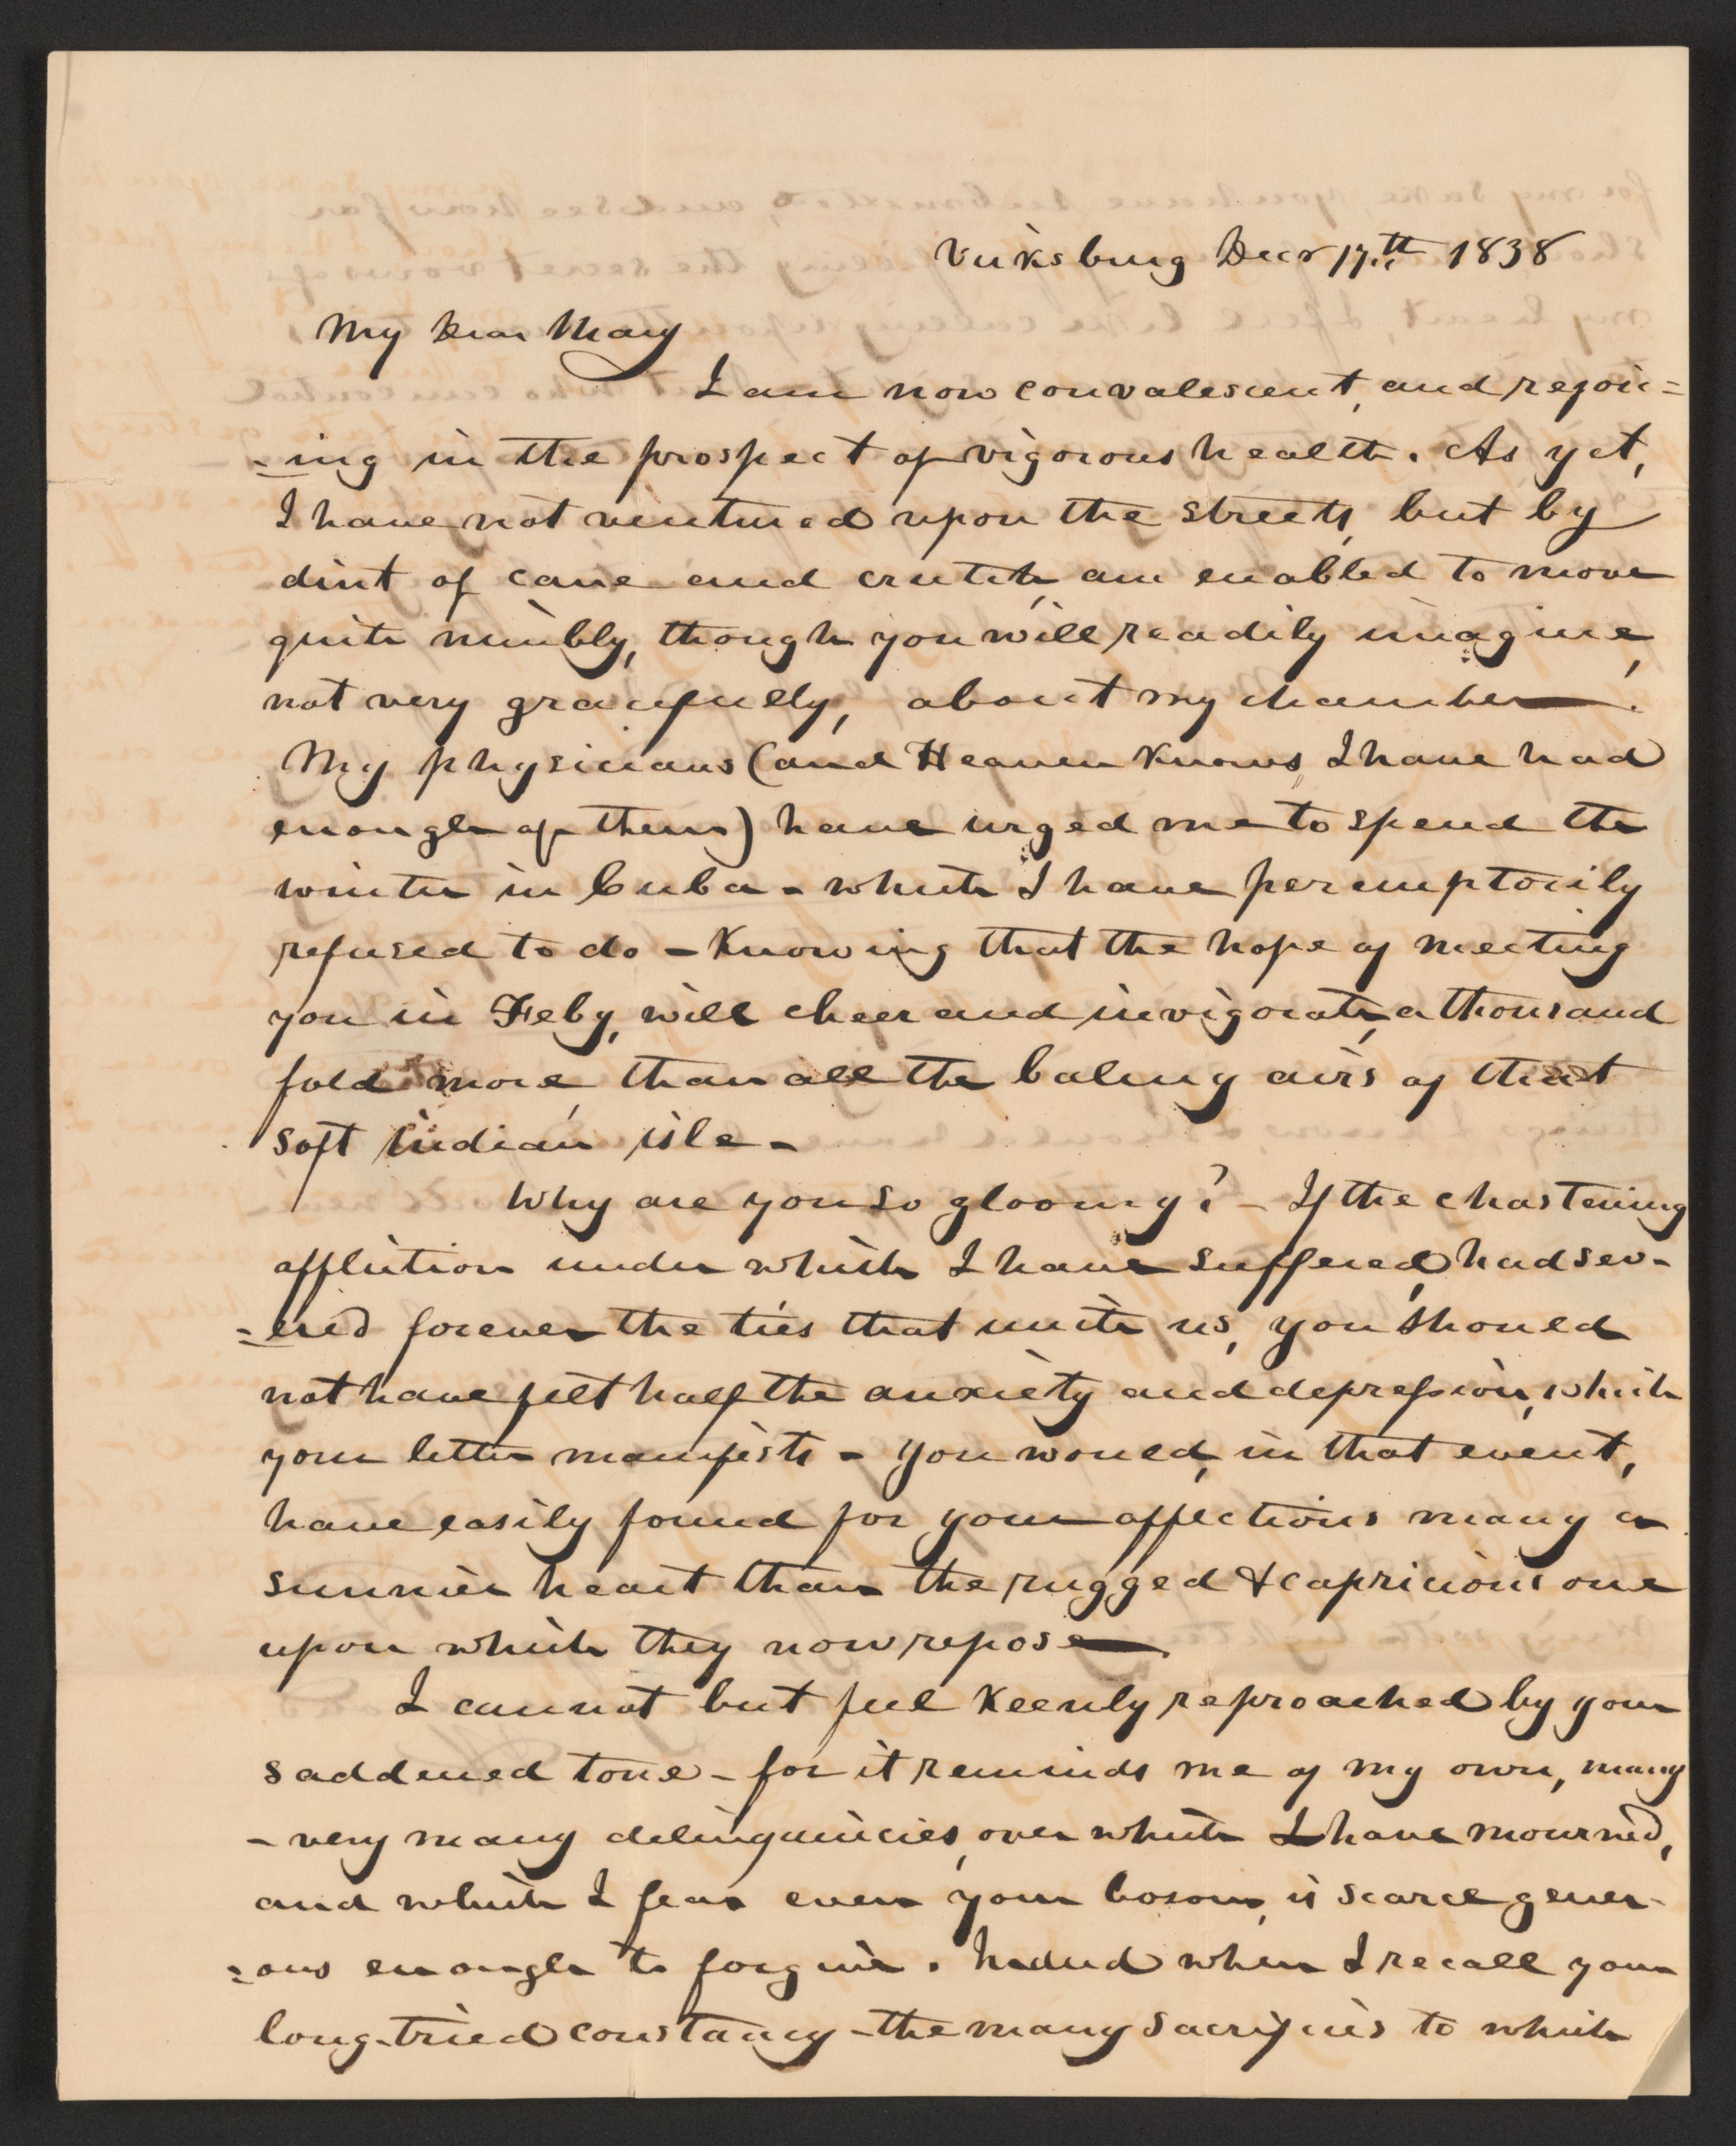 Vicksburg Decr 17.th 1838
My Dear Mary
I am now convalescent, and rejoic=
=ing in the prospect of vigorous health. As yet,
I have not ventured upon the streets, but by
dint of cane and crutch, am enabled to move
quite nimbly, though you will readily imagine,
not very gracefully, about my chamber.
My physicians (and Heaven knows I have had
enough of them) have urged me to spend the
winter in Cuba - which I have peremptorily
refused to do - Knowing that the hope of meeting
you in Feby, will cheer and invigorate, a thousand
fold more, than all the balmy airs of that
soft Indian isle -
Why are you so gloomy? - If the chastening
affliction under which I have suffered, had sev-
=er'd forever the ties that unite us, you should
not have felt half the anxiety and depression, which
your letter manifests - You would, in that event,
have easily found for your affections many a
sunnier heart than the rugged & capricious one
upon which they now repose.
I cannot but feel keenly reproached by your
saddened tone - for it reminds me of my own, many
- very many delinquincies, over which I have mourned,
and which I fear even your bosom, is scarce gener-
=ous enough to forgive. Indeed when I recall your
long-tried constancy - the many sacrifices to which